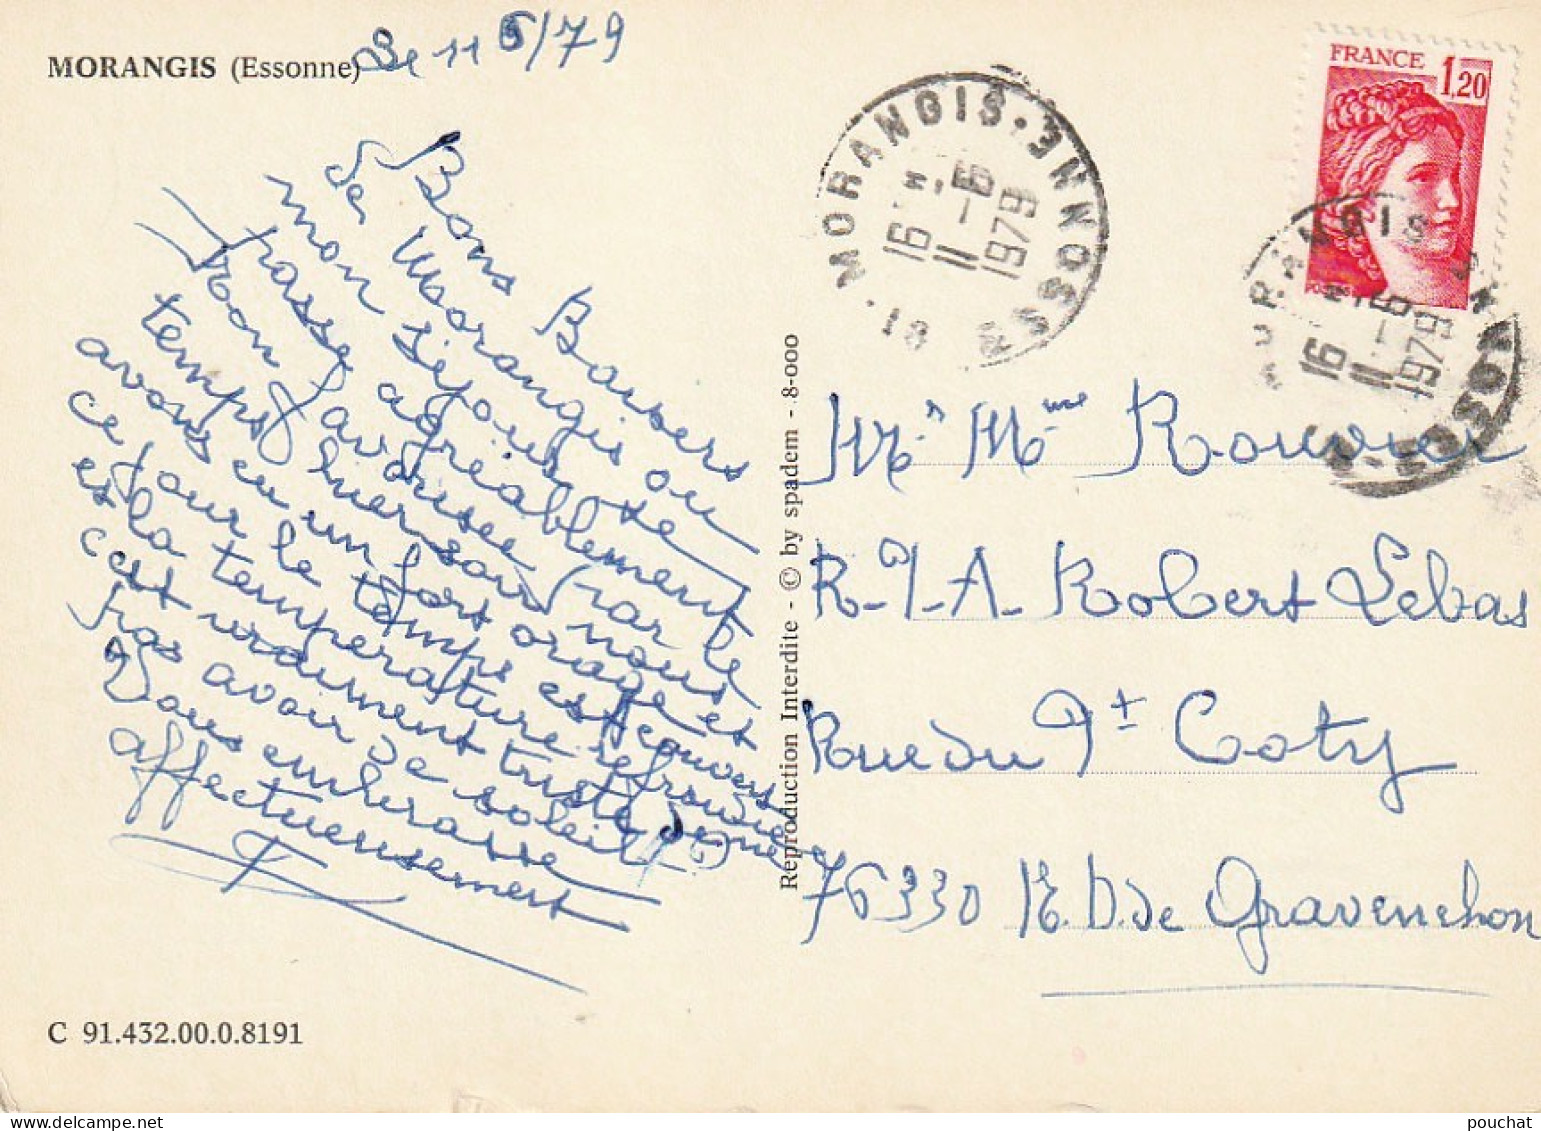 MORANGIS (Essonne)
Le 11 6/79
Bons Baisers
de Morangis ou
mon séjour se
passe agréablement
Non favorisée par le
temps hier soir nous
avons eu un fort orage et
ce jour le temps est couvert
et la température refroidie
c'est vraiment triste de ne
pas avoir de soleil
Vous embrasse
affectueusement
C 91.432.00.0.8191
Reproduction Interdite - © by spadem - 8-000
MORANGIS · ESSONNE
16 H
11 - 6
1979
FRANCE 1,20
MORANGIS · ESSONNE
16 H
11 - 6
1979
Mr Mme Rouvier
R-I-A- Robert Lebas
Rue du Pt Coty
76330 N. D. de Gravenchon
pouchat